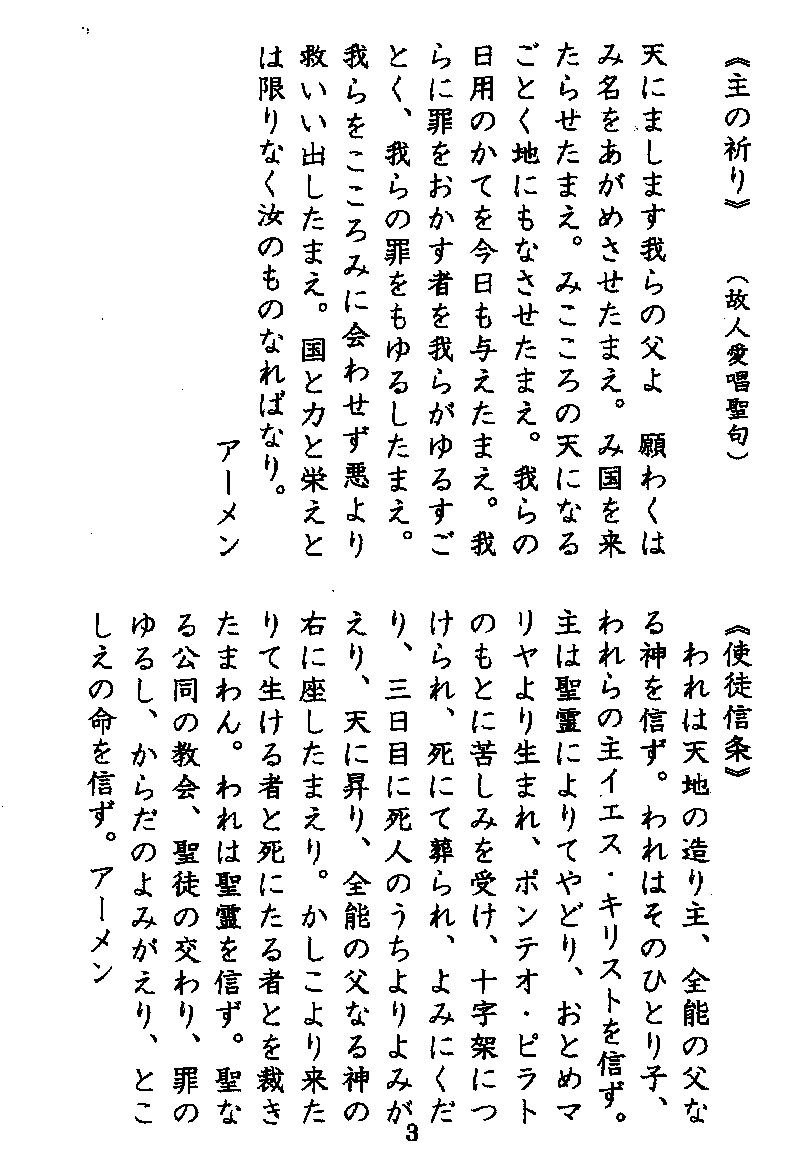 《主の祈り》　（故人愛唱聖句）
天にまします我らの父よ　願わくは
み名をあがめさせたまえ。み国を来
たらせたまえ。みこころの天になる
ごとく地にもなさせたまえ。我らの
日用のかてを今日も与えたまえ。我
らに罪をおかす者を我らがゆるすご
とく、我らの罪をもゆるしたまえ。
我らをこころみに会わせず悪より
救いい出したまえ。国と力と栄えと
は限りなく汝のものなればなり。
アーメン
《使徒信条》
われは天地の造り主、全能の父な
る神を信ず。われはそのひとり子、
われらの主イエス・キリストを信ず。
主は聖霊によりてやどり、おとめマ
リヤより生まれ、ポンテオ・ピラト
のもとに苦しみを受け、十字架につ
けられ、死にて葬られ、よみにくだ
り、三日目に死人のうちよりよみが
えり、天に昇り、全能の父なる神の
右に座したまえり。かしこより来た
りて生ける者と死にたる者とを裁き
たまわん。われは聖霊を信ず。聖な
る公同の教会、聖徒の交わり、罪の
ゆるし、からだのよみがえり、とこ
しえの命を信ず。アーメン
3